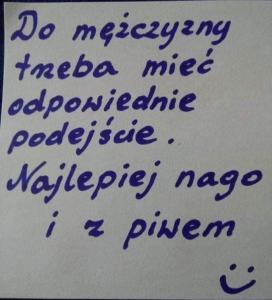 Do mężczyzny
trzeba mieć
odpowiednie
podejście.
Najlepiej nago
i z piwem